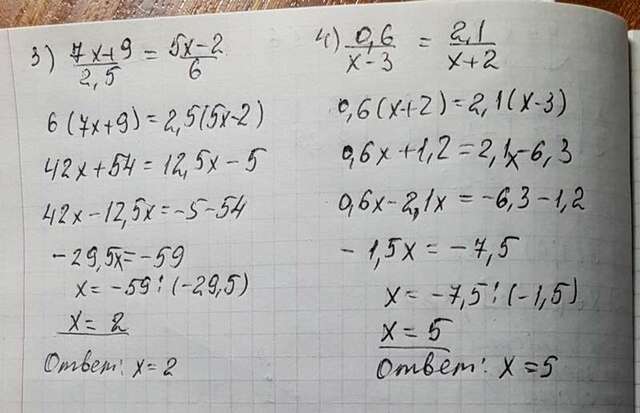 3) (7x+9)/2,5 = (5x-2)/6
6(7x+9)=2,5(5x-2)
42x+54=12,5x-5
42x-12,5x=-5-54
-29,5x=-59
x=-59:(-29,5)
x=2
Ответ: x=2
4) 0,6/(x-3) = 2,1/(x+2)
0,6(x+2)=2,1(x-3)
0,6x+1,2=2,1x-6,3
0,6x-2,1x=-6,3-1,2
-1,5x=-7,5
x=-7,5:(-1,5)
x=5
Ответ: x=5